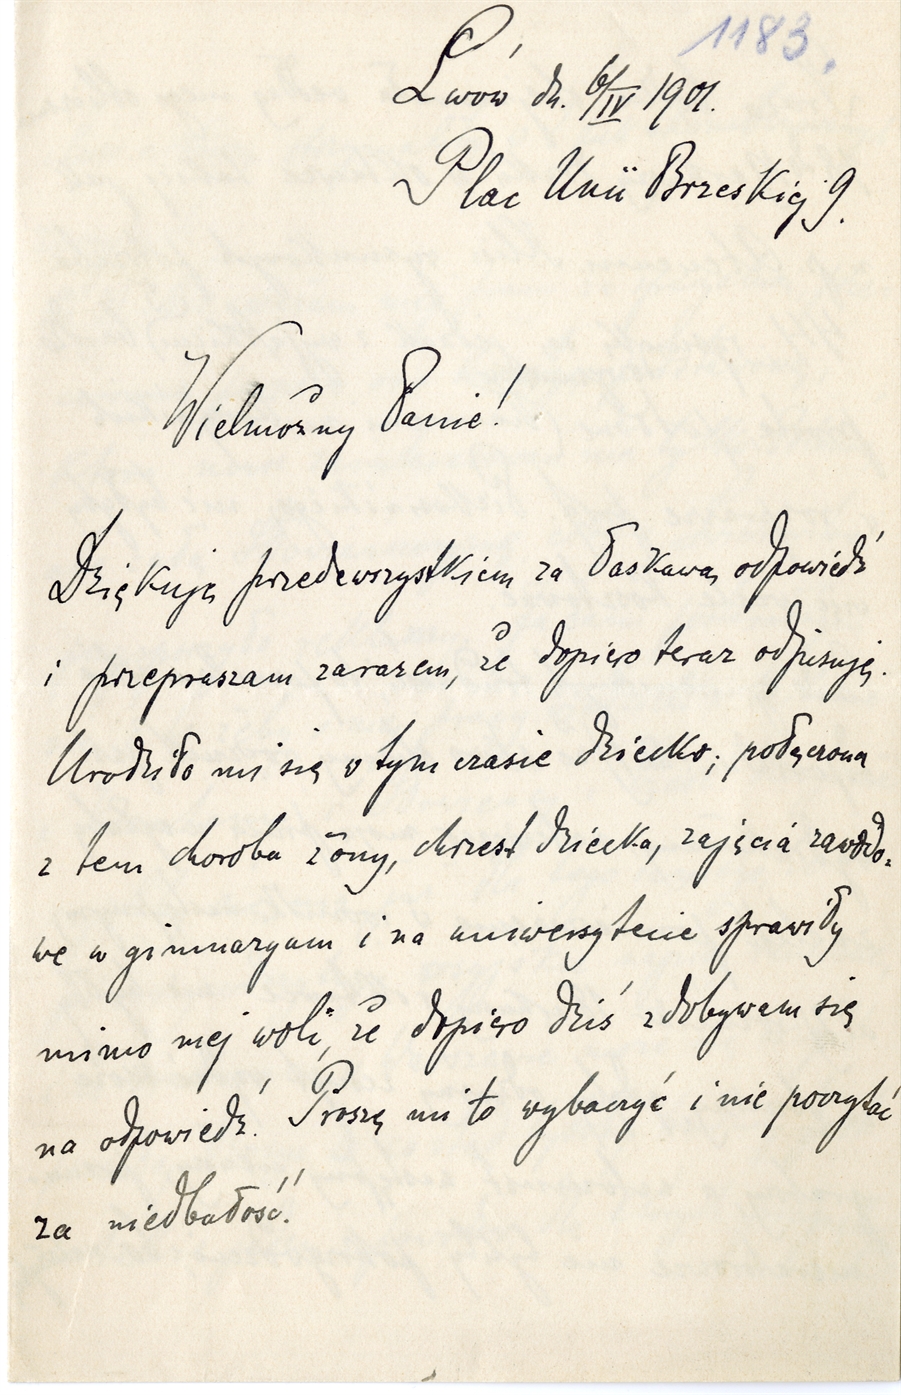 1183.
Lwów dn. 6/IV 1901.
Plac Unii Brzeskiej 9.
Wielmożny Panie!
Dziękuję przedewszystkiem za łaskawą odpowiedź
i przepraszam zarazem, że dopiero teraz odpisuję.
Urodziło mi się w tym czasie dziecko; połączona
z tem choroba żony, chrzest dziecka, zajęcia zawodo-
we w gimnazyum i na uniwersytecie sprawiły
mimo mej woli, że dopiero dziś zdobywam się
na odpowiedź. Proszę mi to wybaczyć i nie poczytać
za niedbałość!